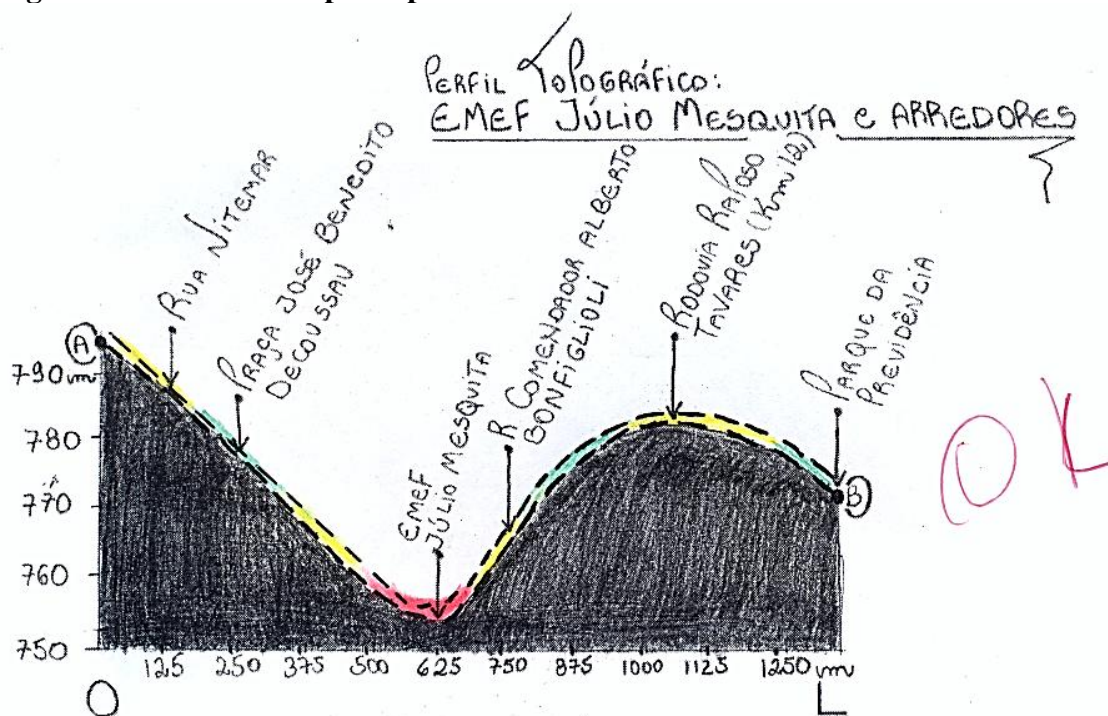 PERFIL TOPOGRÁFICO:
EMEF JÚLIO MESQUITA e ARREDORES
RUA NITEMAR
PRAÇA JOSÉ BENEDITO
DECOUSSAU
EMEF
JÚLIO MESQUITA
R COMENDADOR ALBERTO
BONFIGLIOLI
RODOVIA RAPOSO
TAVARES (Km 12)
PARQUE DA
PREVIDÊNCIA
A
B
790 m
780
770
760
750
125 250 375 500 625 750 875 1000 1125 1250 m
O L
OK